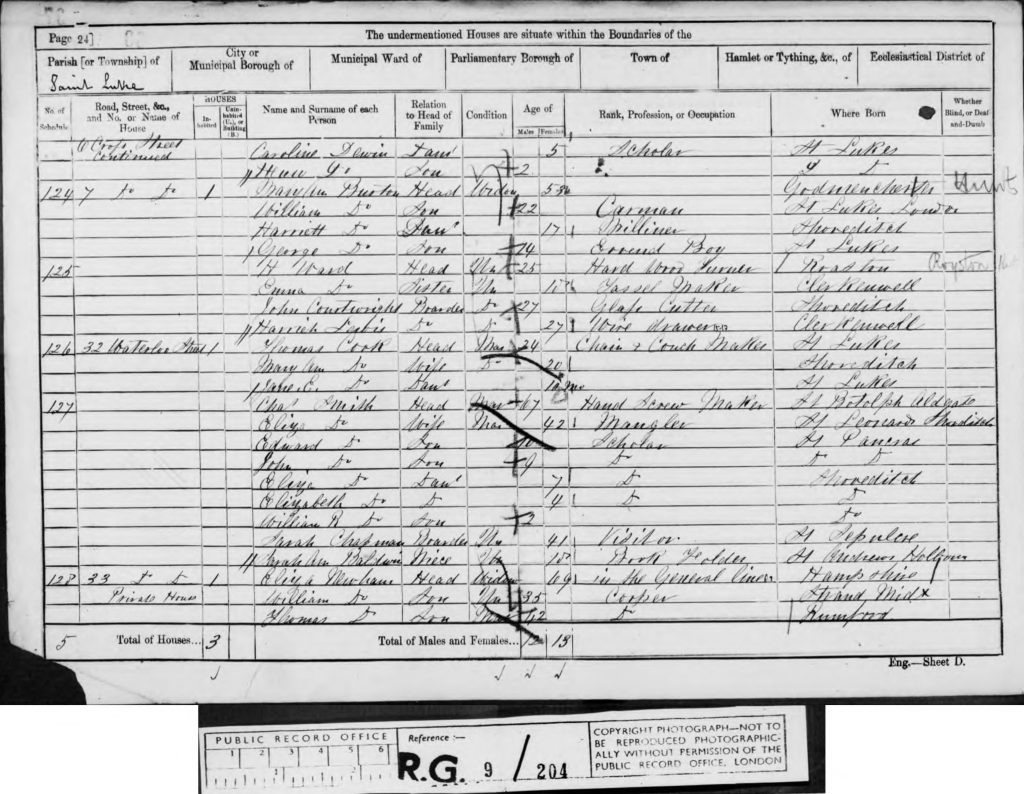 Page 24]
The undermentioned Houses are situate within the Boundaries of the
Parish [or Township] of
City or Municipal Borough of
Municipal Ward of
Parliamentary Borough of
Town of
Hamlet or Tything, &c., of
Ecclesiastical District of
Saint Luke
No. of Schedule
Road, Street, &c., and No. or Name of House
HOUSES
Inhabited
Uninhabited (U.), or Building (B.)
Name and Surname of each Person
Relation to Head of Family
Condition
Age of
Males
Females
Rank, Profession, or Occupation
Where Born
Whether Blind, or Deaf-and-Dumb
6 Street continued Caroline Dewin Daur 5 Scholar St Lukes
Do Son 2 Do
124 7 Do Do 1 Mary Ann Burton Head Widow 53 Hunts
William Do Son 22 Carman St Lukes London
Harriett Do Daur 17 Milliner Shoreditch
George Do Son 14 Errend Boy St Lukes
125 H Ward Head Un 25 Hard Wood Turner Royston
Emma Do Sister Un Tassel Maker Clerkenwell
John Boarder Do 27 Glass Cutter Shoreditch
Harriet Do Do 27 Wire drawer Clerkenwell
126 32 Waterloo Street 1 Thomas Cook Head Mar 24 Chair & Couch Maker St Lukes
Mary Ann Do Wife Do 20 Shoreditch
Jane E. Do Daur 10 mo St Lukes
127 Chas Smith Head Mar 67 Hand Screw Maker St Botolph Aldgate
Eliza Do Wife Mar 42 Mangler St Leonards Shoreditch
Edward Do Son 10 Scholar St Pancras
John Do Son 9 Do Do Do
Eliza Do Daur 7 Do Shoreditch
Elizabeth Do D 4 Do Do
William R Do Son 2 Do
Sarah Chapman Boarder Un 41 Visitor St Sepulcre
Sarah Ann Baldwin Niece Un 18 Book Folder St Andrews Holborn
128 33 Do Do 1 Eliza Newham Head Widow 69 in the General line Hampshire
Private House William Do Son Un 35 Cooper Strand Midx
Thomas Do Son Mar 42 Do Rumford
5 Total of Houses... 3 Total of Males and Females... 12 13
Eng.—Sheet D.
PUBLIC RECORD OFFICE
1 2 3 4 5 6
Reference :—
R.G. 9 / 204
COPYRIGHT PHOTOGRAPH—NOT TO
BE REPRODUCED PHOTOGRAPHIC-
ALLY WITHOUT PERMISSION OF THE
PUBLIC RECORD OFFICE, LONDON